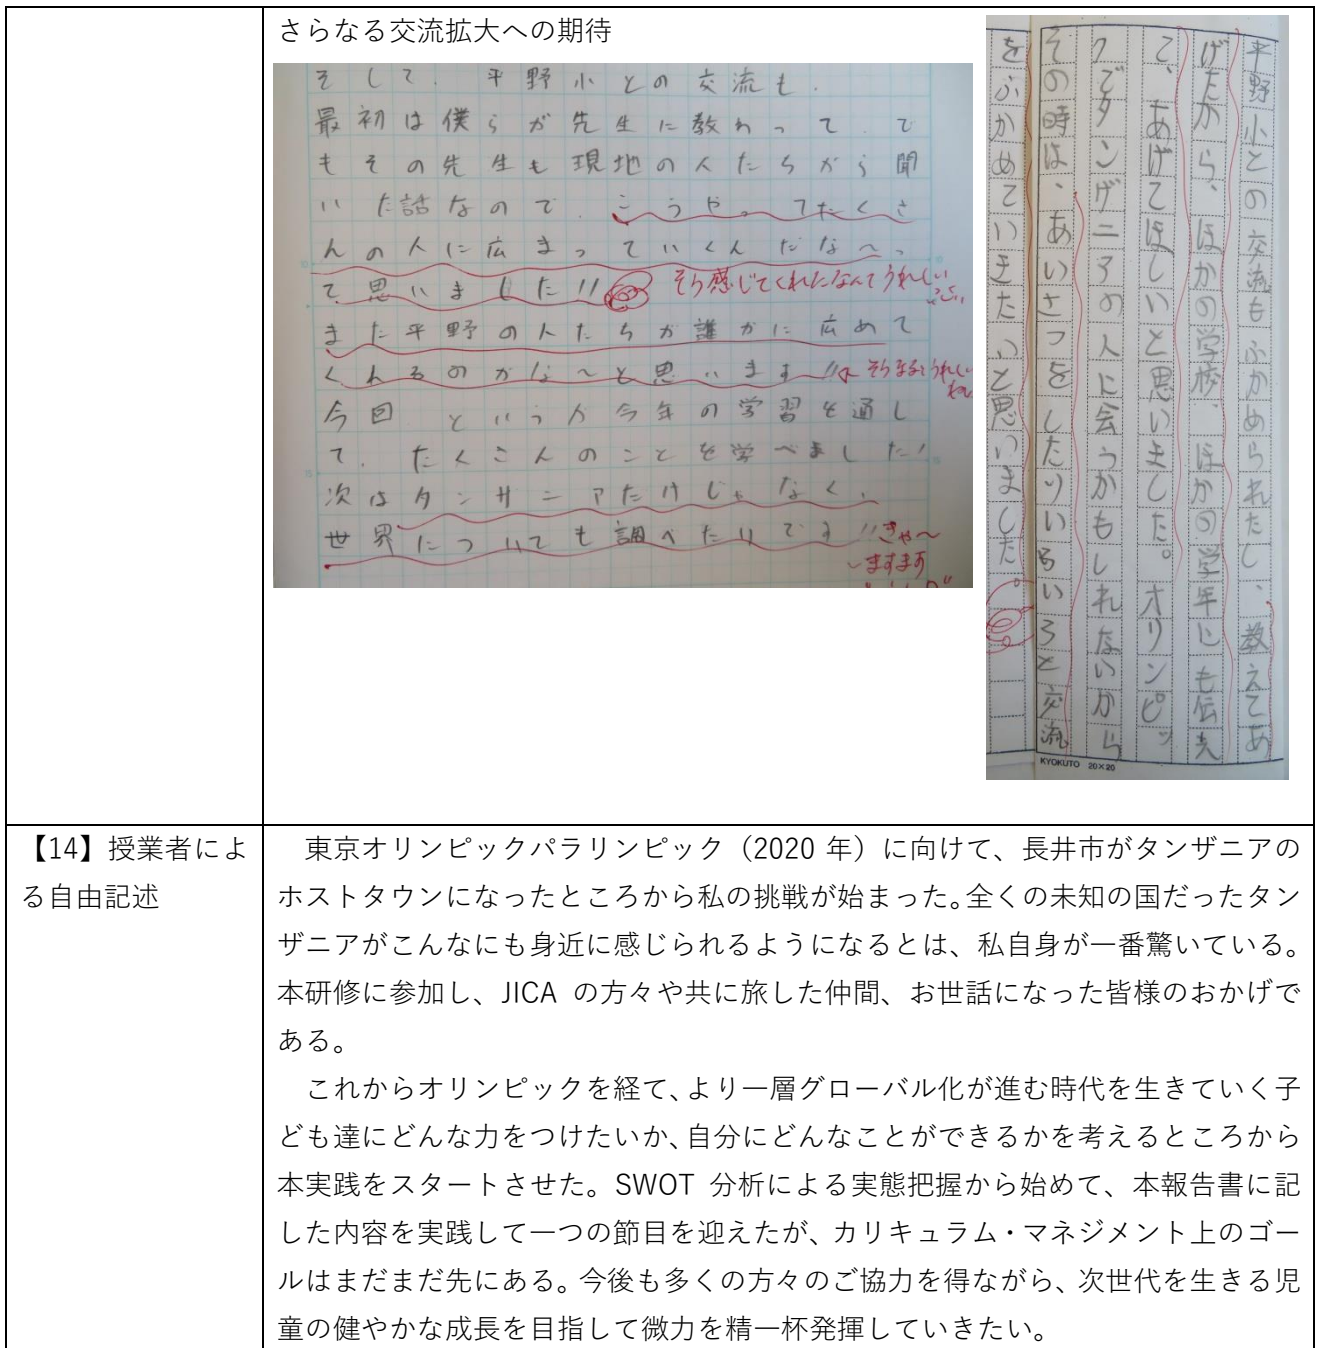 さらなる交流拡大への期待
そして、平野小との交流も、
最初は僕らが先生に教わって、で
もその先生も現地の人たちから聞
いた話なので、こうやってたくさ
んの人に広まっていくんだな〜っ
て思いました!!
そう感じてくれたなんてうれしい
また平野の人たちが誰かに広めて
くれるのかな〜と思います!!
そうなるとうれしい
今回というか今年の学習を通し
て、たくさんのことを学べました!
次はタンザニアだけじゃなく、
世界についても調べたいです!!
きゃ〜
ますます
平野小との交流もふかめられたし、教えてあ
げたから、ほかの学校、ほかの学年にも伝え
て、あげてほしいと思いました。オリンピッ
クでタンザニアの人に会うかもしれないから
その時は、あいさつをしたりいろいろと交流
をふかめていきたいと思いました。
KYOKUTO 20×20
【14】授業者によ
る自由記述
東京オリンピックパラリンピック（2020 年）に向けて、長井市がタンザニアの
ホストタウンになったところから私の挑戦が始まった。全くの未知の国だったタン
ザニアがこんなにも身近に感じられるようになるとは、私自身が一番驚いている。
本研修に参加し、JICA の方々や共に旅した仲間、お世話になった皆様のおかげで
ある。
これからオリンピックを経て、より一層グローバル化が進む時代を生きていく子
ども達にどんな力をつけたいか、自分にどんなことができるかを考えるところから
本実践をスタートさせた。SWOT 分析による実態把握から始めて、本報告書に記
した内容を実践して一つの節目を迎えたが、カリキュラム・マネジメント上のゴー
ルはまだまだ先にある。今後も多くの方々のご協力を得ながら、次世代を生きる児
童の健やかな成長を目指して微力を精一杯発揮していきたい。